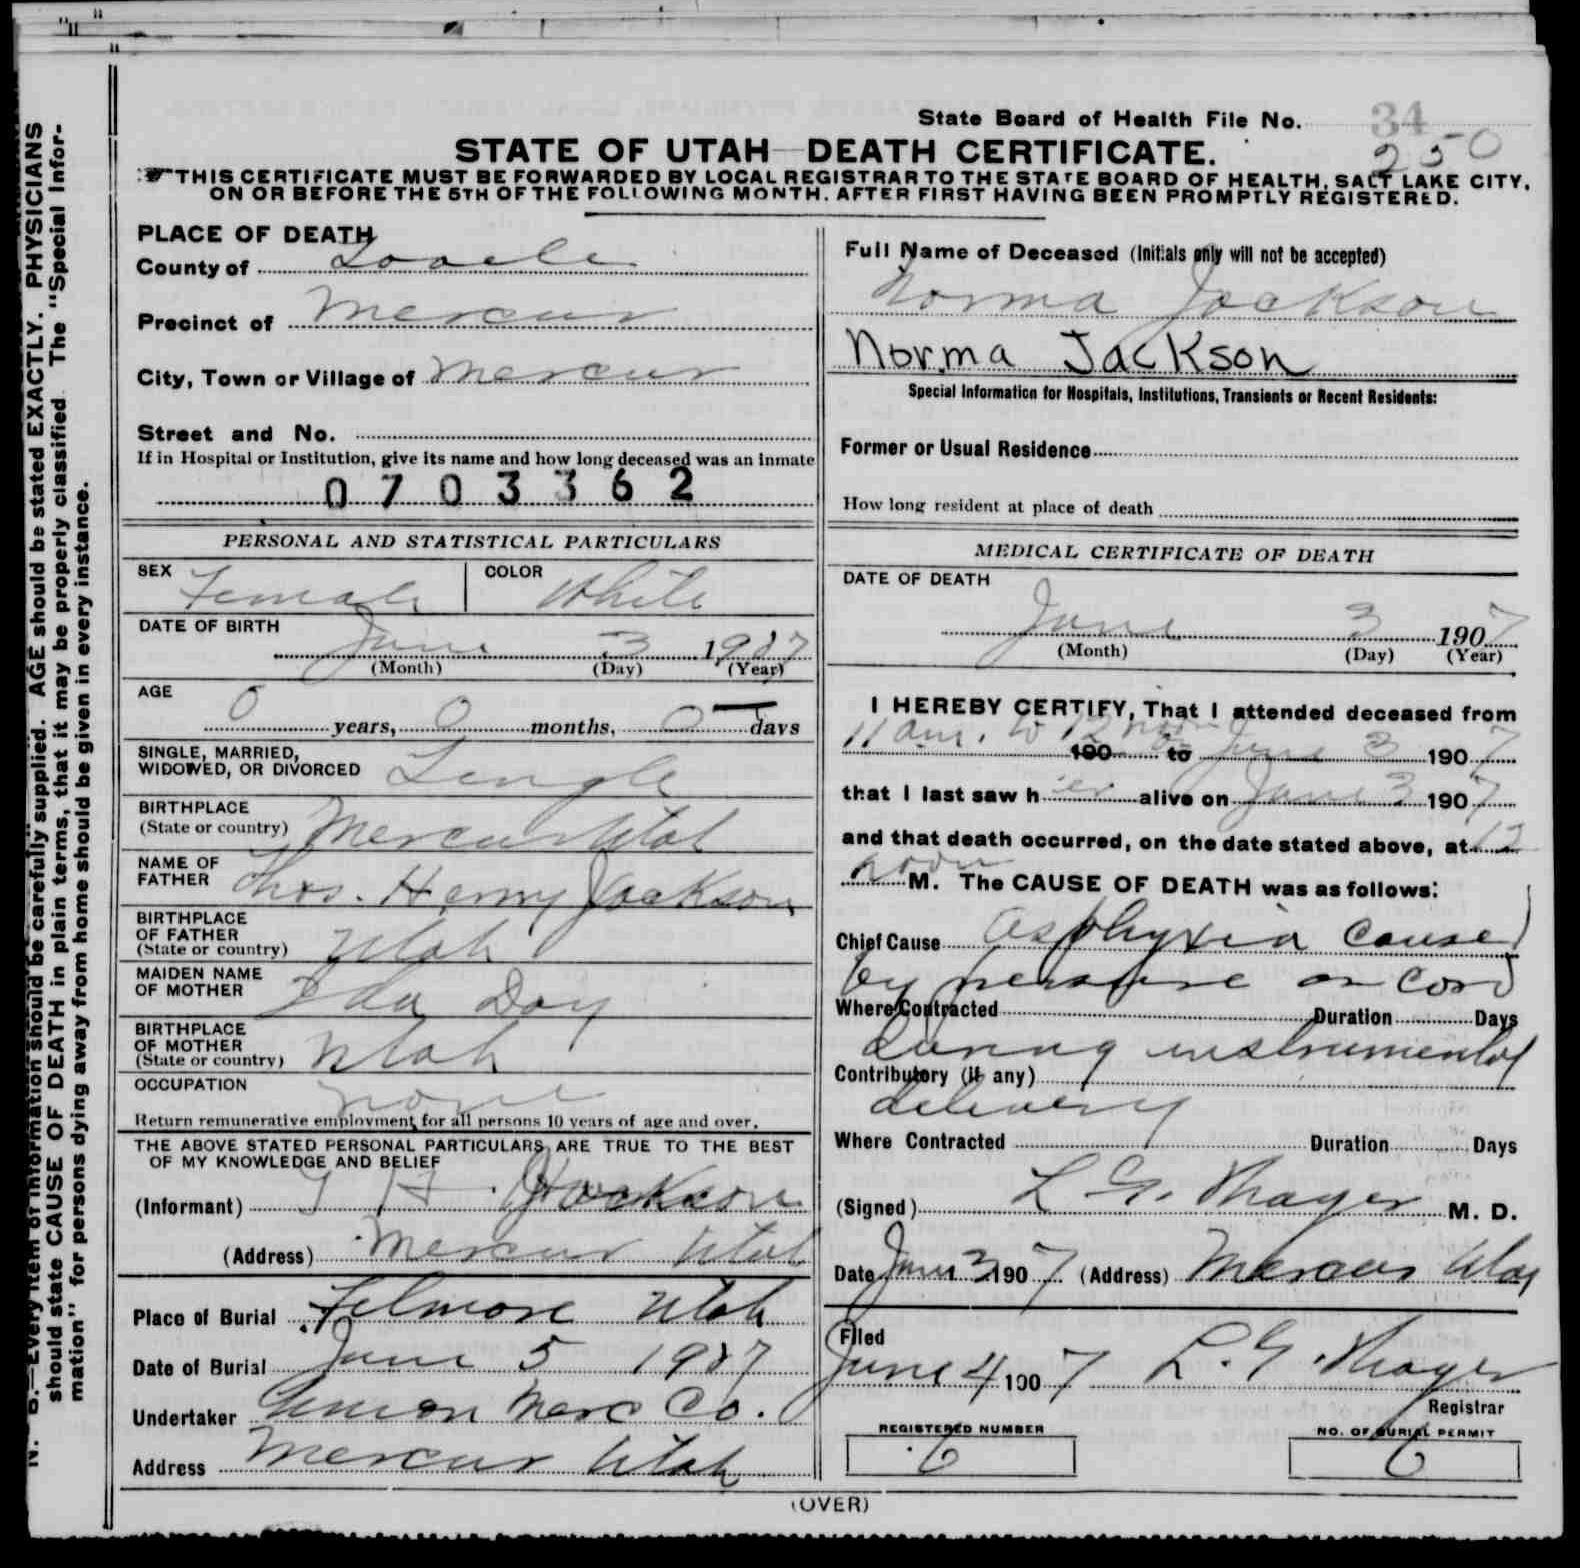 N. B.—Every item of information should be carefully supplied. AGE should be stated EXACTLY. PHYSICIANS
should state CAUSE OF DEATH in plain terms, that it may be properly classified. The "Special Infor-
mation" for persons dying away from home should be given in every instance.
State Board of Health File No. 34
250
STATE OF UTAH—DEATH CERTIFICATE.
THIS CERTIFICATE MUST BE FORWARDED BY LOCAL REGISTRAR TO THE STATE BOARD OF HEALTH, SALT LAKE CITY,
ON OR BEFORE THE 5TH OF THE FOLLOWING MONTH, AFTER FIRST HAVING BEEN PROMPTLY REGISTERED.
PLACE OF DEATH
County of Tooele
Precinct of Mercur
City, Town or Village of Mercur
Street and No.
If in Hospital or Institution, give its name and how long deceased was an inmate
0703362
PERSONAL AND STATISTICAL PARTICULARS
SEX Female COLOR White
DATE OF BIRTH
June 3 1907
(Month) (Day) (Year)
AGE
0 years, 0 months, 0 days
SINGLE, MARRIED,
WIDOWED, OR DIVORCED Single
BIRTHPLACE
(State or country) Mercur Utah
NAME OF
FATHER Thos. Henry Jackson
BIRTHPLACE
OF FATHER
(State or country) Utah
MAIDEN NAME
OF MOTHER Ida Day
BIRTHPLACE
OF MOTHER
(State or country) Utah
OCCUPATION none
Return remunerative employment for all persons 10 years of age and over.
THE ABOVE STATED PERSONAL PARTICULARS ARE TRUE TO THE BEST
OF MY KNOWLEDGE AND BELIEF
(Informant) T H. Jackson
(Address) Mercur Utah
Place of Burial Filmore Utah
Date of Burial June 5 1907
Undertaker Merc Co.
Address Mercur Utah
Full Name of Deceased (Initials only will not be accepted)
Norma Jackson
Norma Jackson
Special Information for Hospitals, Institutions, Transients or Recent Residents:
Former or Usual Residence
How long resident at place of death
MEDICAL CERTIFICATE OF DEATH
DATE OF DEATH
June 3 1907
(Month) (Day) (Year)
I HEREBY CERTIFY, That I attended deceased from
11 am. to 12 noon 190 to June 3 1907
that I last saw her alive on June 3 1907
and that death occurred, on the date stated above, at 12
noon M. The CAUSE OF DEATH was as follows:
Chief Cause asphyxia caused
by pressure on cord
Where Contracted Duration Days
during instrumental
Contributory (if any)
delivery
Where Contracted Duration Days
(Signed) L. G. Thayer M. D.
Date June 3 1907 (Address) Mercur Utah
Filed
June 4 1907 L. G. Thayer
Registrar
REGISTERED NUMBER
6
NO. OF BURIAL PERMIT
6
(OVER)